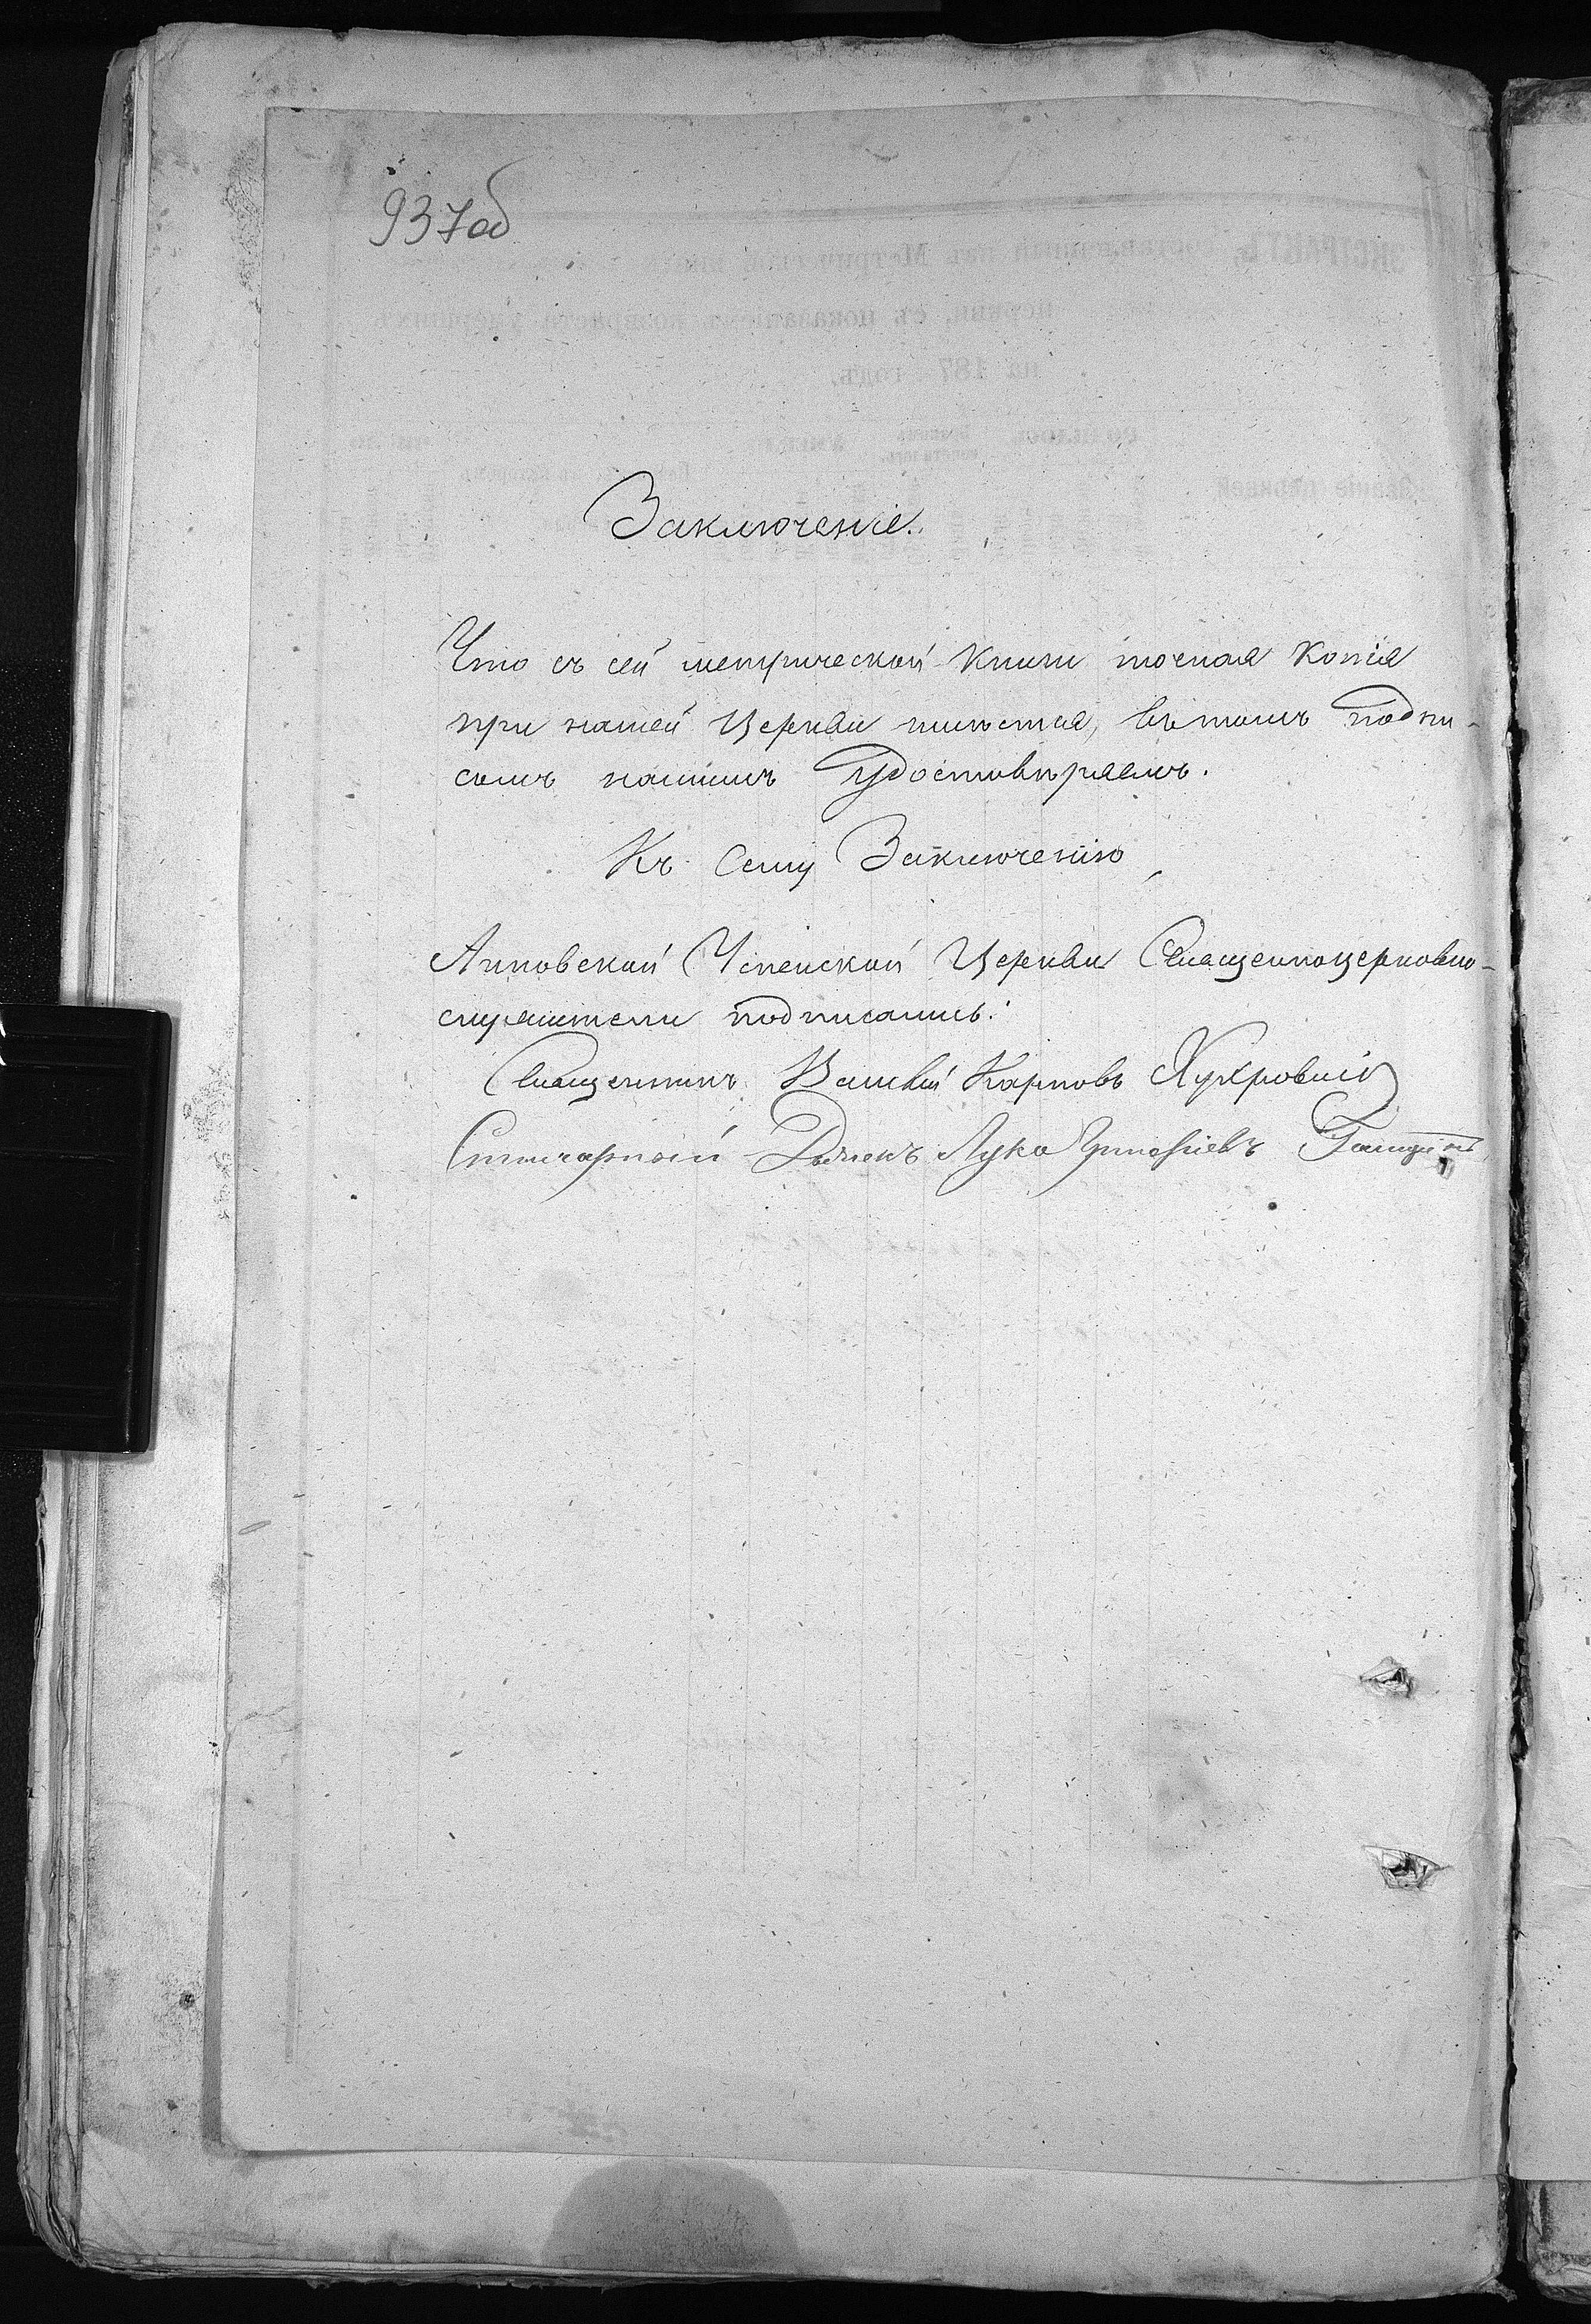 937об
Заключеніе.
Что съ сей метрической книги точная копія
при нашей Церкви имѣется, въ томъ подпи-
сомъ нашимъ Удостовѣряемъ.
Къ Сему Заключенію
Анновской Успенской Церкви Священноцерковно-
служители подписались:
Священникъ Василій Карповъ
Стихарный Дьячекъ Лука Григорьевъ